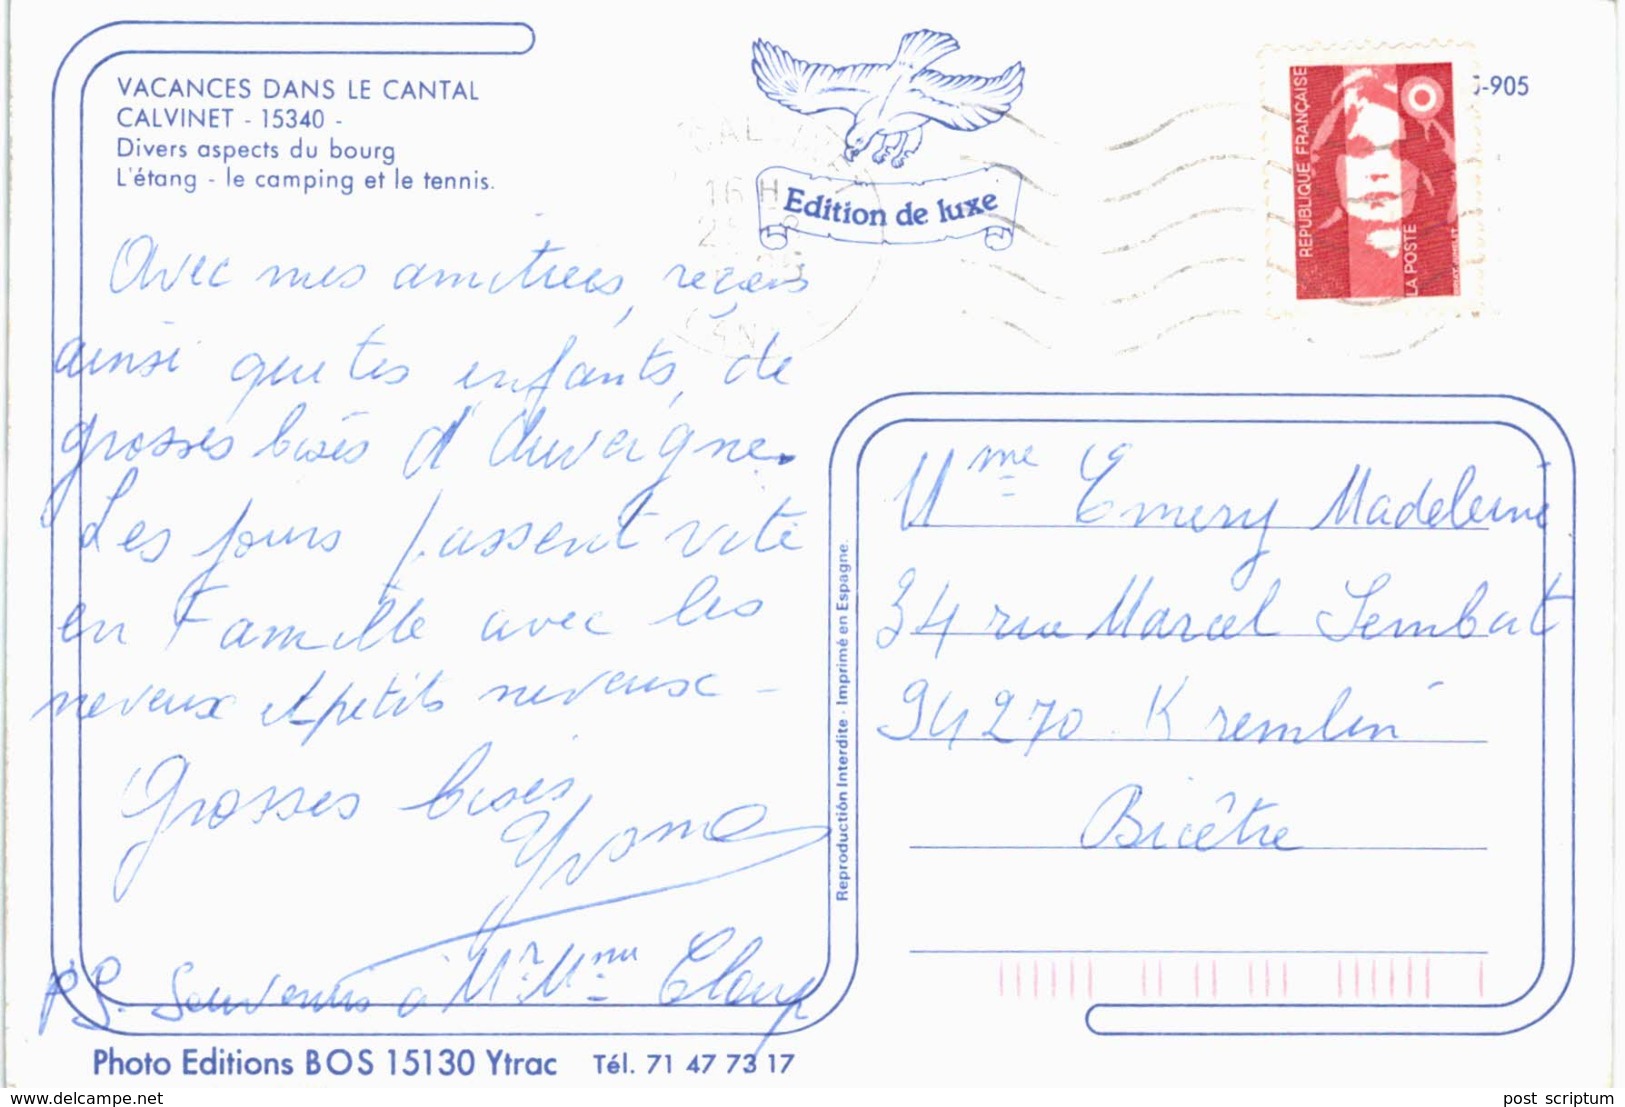 VACANCES DANS LE CANTAL
CALVINET - 15340 -
Divers aspects du bourg
L'étang - le camping et le tennis.
Edition de luxe
16 H
RÉPUBLIQUE FRANÇAISE
LA POSTE
5-905
Avec mes amitiées, reçois
ainsi que tes enfants, de
grosses bisés d'Auvergne.
Les jours passent vite
en Famille avec les
neveux et petits neveux -
Grosses bisés
Yvonne
P.S. Souvenirs à Mr. Mme
Reproduction Interdite - Imprimé en Espagne.
Mme Emery Madeleine
34 rue Marcel Sembat
94270 Kremlin
Bicêtre
Photo Editions BOS 15130 Ytrac Tél. 71 47 73 17
www.delcampe.net
post scriptum